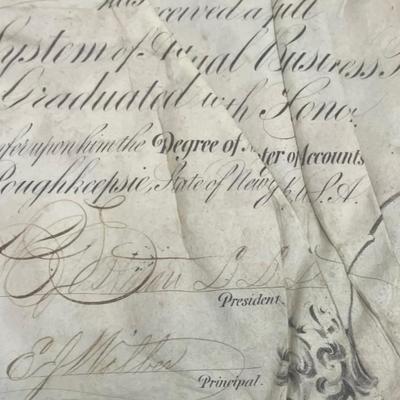 has received a full
System of Actual Business
Graduated with Honor
confer upon him the Degree of Master of Accounts
Poughkeepsie, State of New York, U.S.A.
President.
E J Wilber
Principal.